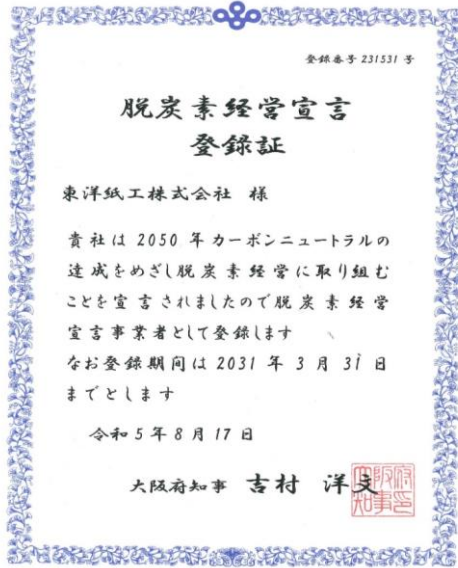 登録番号 231531 号
脱炭素経営宣言
登録証
東洋紙工株式会社 様
貴社は 2050 年カーボンニュートラルの
達成をめざし脱炭素経営に取り組む
ことを宣言されましたので脱炭素経営
宣言事業者として登録します
なお登録期間は 2031 年 3 月 31 日
までとします
令和 5 年 8 月 17 日
大阪府知事 吉村 洋文
大阪府知事印